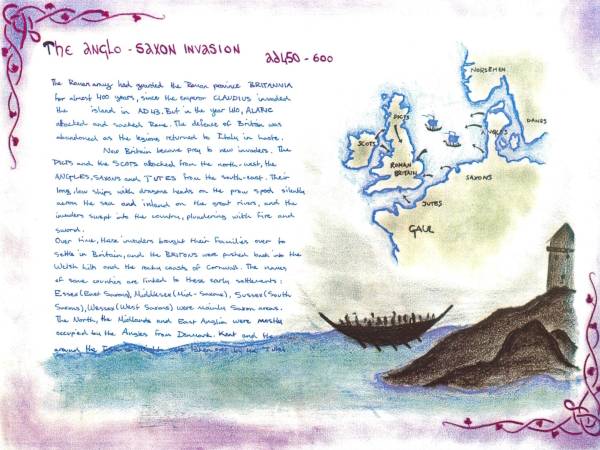 The Anglo-Saxon Invasion
AD450-600
The Roman army had guarded the Roman province BRITANNIA
for almost 400 years, since the emperor CLAUDIUS invaded
the island in AD43. But in the year 410, ALARIC
attacked and sacked Rome. The defence of Britain was
abandoned as the legions returned to Italy in haste.
Now Britain became prey to new invaders. The
PICTS and the SCOTS attacked from the north-west, the
ANGLES, SAXONS and JUTES from the south-east. Their
long, low ships with dragons heads on the prow sped silently
across the sea and inland on the great rivers, and the
invaders swept into the country, plundering with fire and
sword.
Over time, these invaders brought their families over to
settle in Britain, and the BRITONS were pushed back into the
Welsh hills and the rocky coasts of Cornwall. The names
of some counties are linked to these early settlements:
Essex (East Saxons), Middlesex (Mid-Saxons), Sussex (South
Saxons), Wessex (West Saxons) were mainly Saxon areas.
The North, the Midlands and East Anglia were mostly
occupied by the Angles from Denmark. Kent and the
around the by the Jutes
NORSEMEN
PICTS
SCOTS
ANGLES
DANES
ROMAN
BRITAIN
SAXONS
JUTES
GAUL